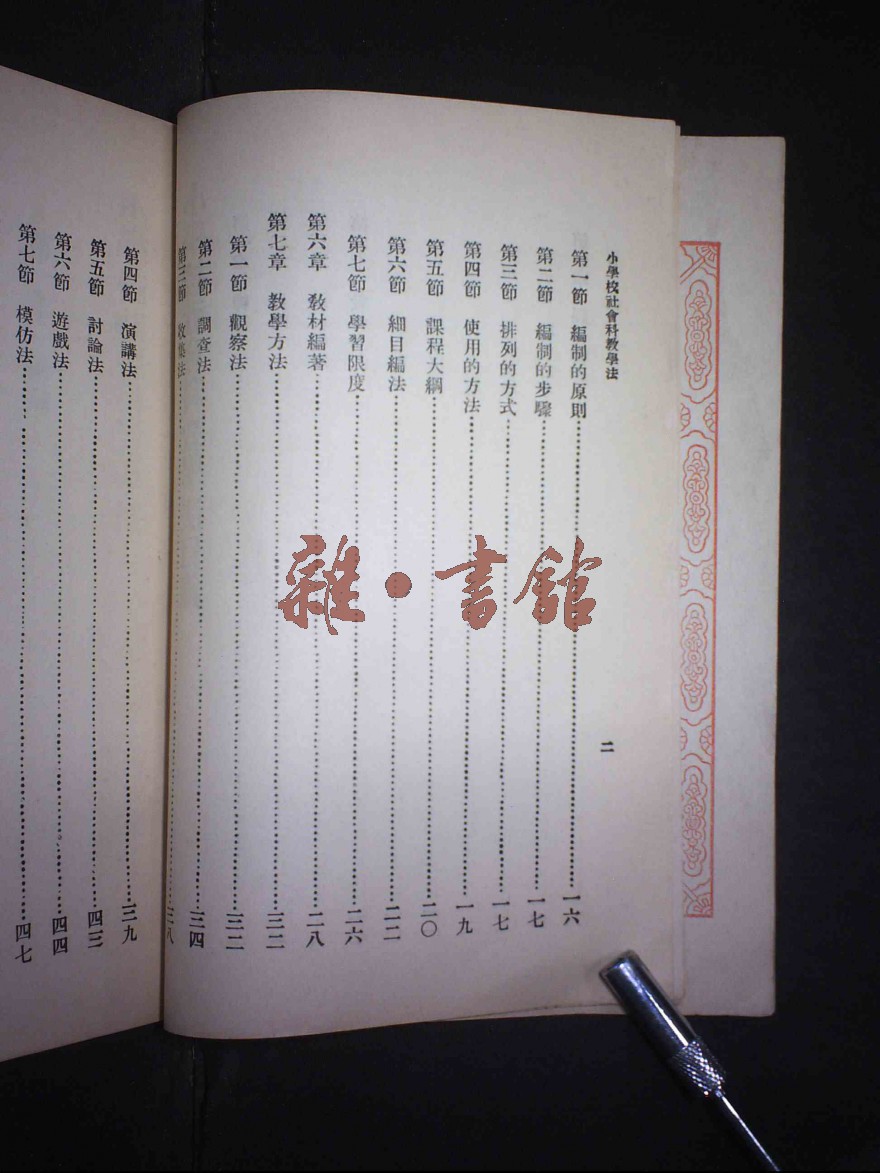 小學校社會科教學法
二
第一節 編制的原則……一六
第二節 編制的步驟……一七
第三節 排列的方式……一七
第四節 使用的方法……一九
第五節 課程大綱……二〇
第六節 細目編法……二二
第七節 學習限度……二六
第六章 敎材編著……二八
第七章 敎學方法……三二
第一節 觀察法……三二
第二節 調查法……三四
第三節 收集法……三八
第四節 演講法……三九
第五節 討論法……四三
第六節 遊戲法……四四
第七節 模仿法……四七
雜·書館